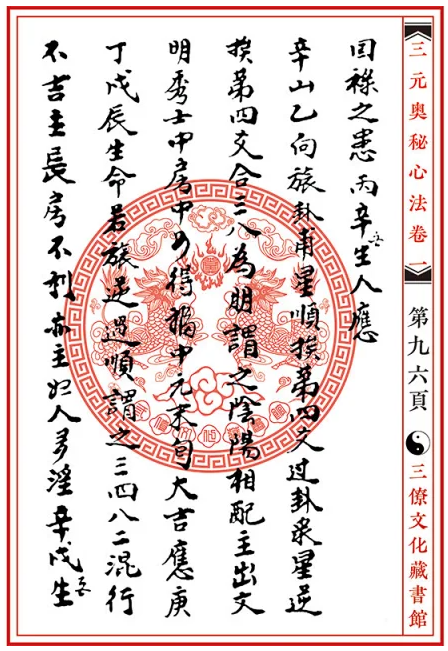 三元奥秘心法卷一
第九六頁
三僚文化藏書館
回祿之患丙辛生人應
辛山乙向旅卦甫星順挨第四爻过卦泉星逆
挨第四爻合三八為朋謂之陰陽相配主出文
明秀士中房中女得福中元末旬大吉應庚
丁戊辰生命若旅逆過順謂之三四八二混行
不吉主長房不利亦主妇人多淫辛戊生